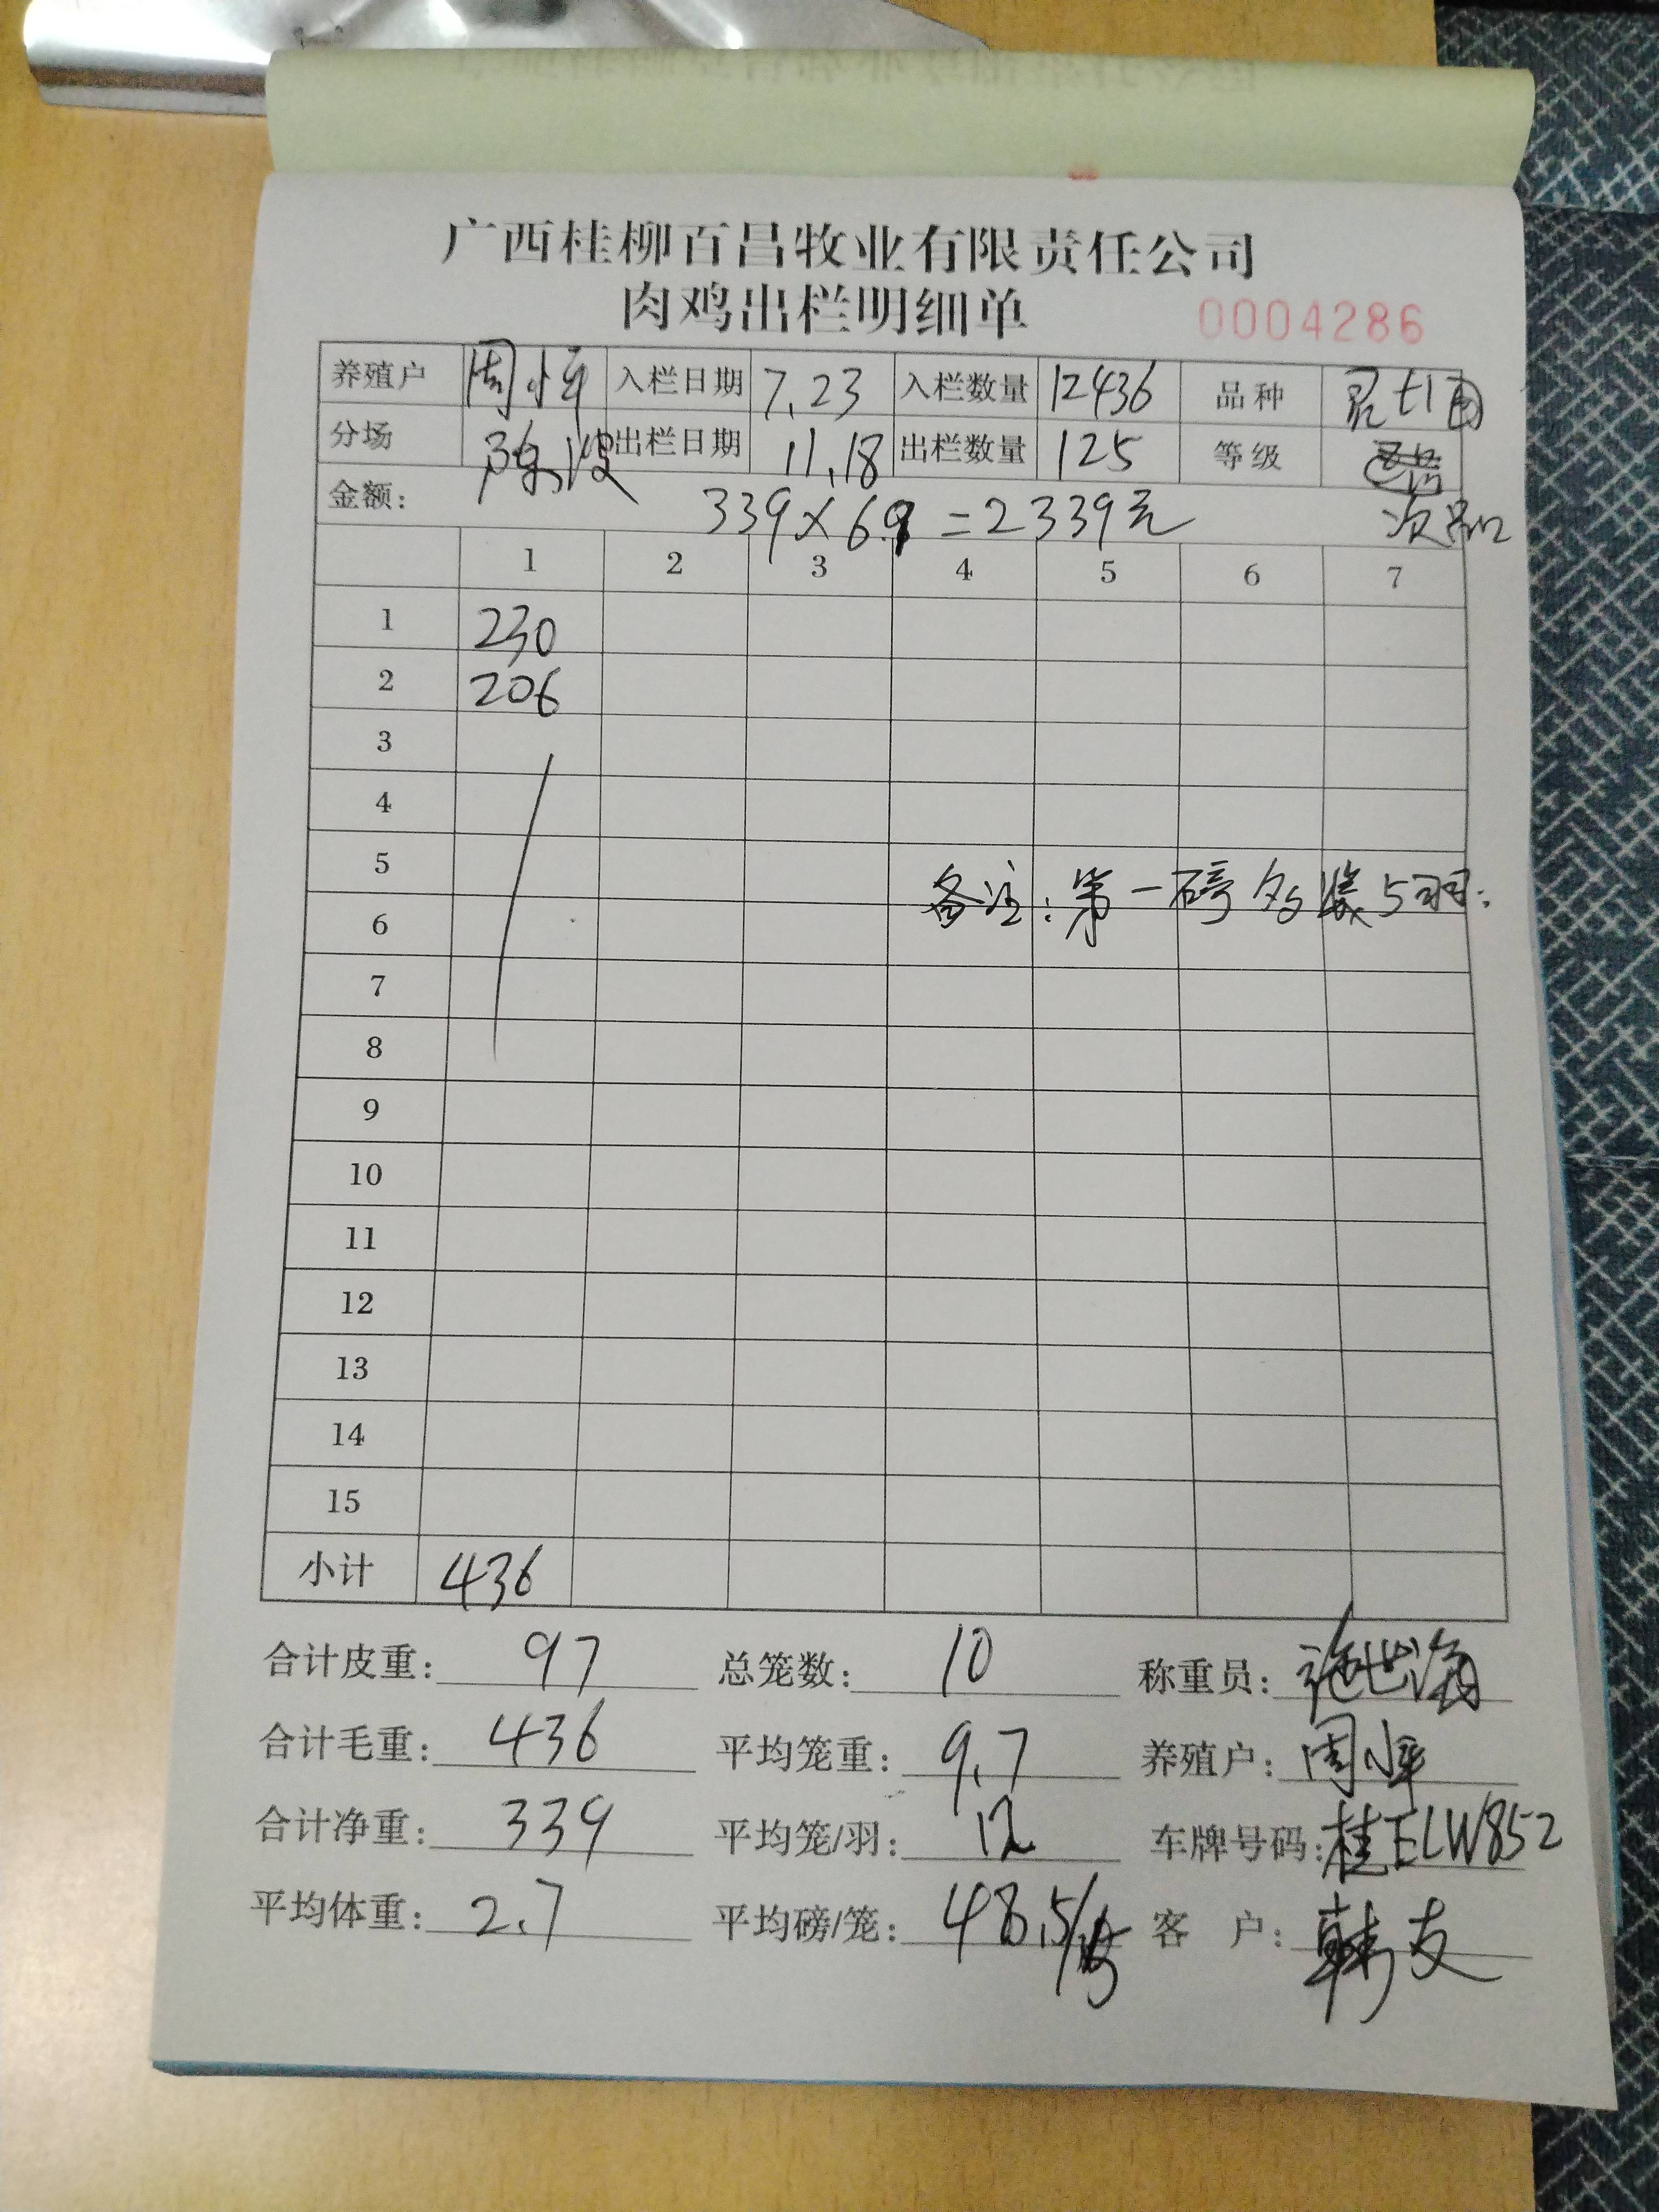 广西桂柳百昌牧业有限责任公司
肉鸡出栏明细单 0004286
养殖户 周 入栏日期 7.23 入栏数量 12436 品种
分场 陈波 出栏日期 11.18 出栏数量 125 等级
金额: 339×6.9=2339元 次品
1 2 3 4 5 6 7
1 230
2 206
3
4
5 备注:第一磅多装5羽.
6
7
8
9
10
11
12
13
14
15
小计 436
合计皮重: 97 总笼数: 10 称重员: 施世海
合计毛重: 436 平均笼重: 9.7 养殖户: 周
合计净重: 339 平均笼/羽: 12 车牌号码: 桂ELW852
平均体重: 2.7 平均磅/笼: 48.5/ 客户: 韩友